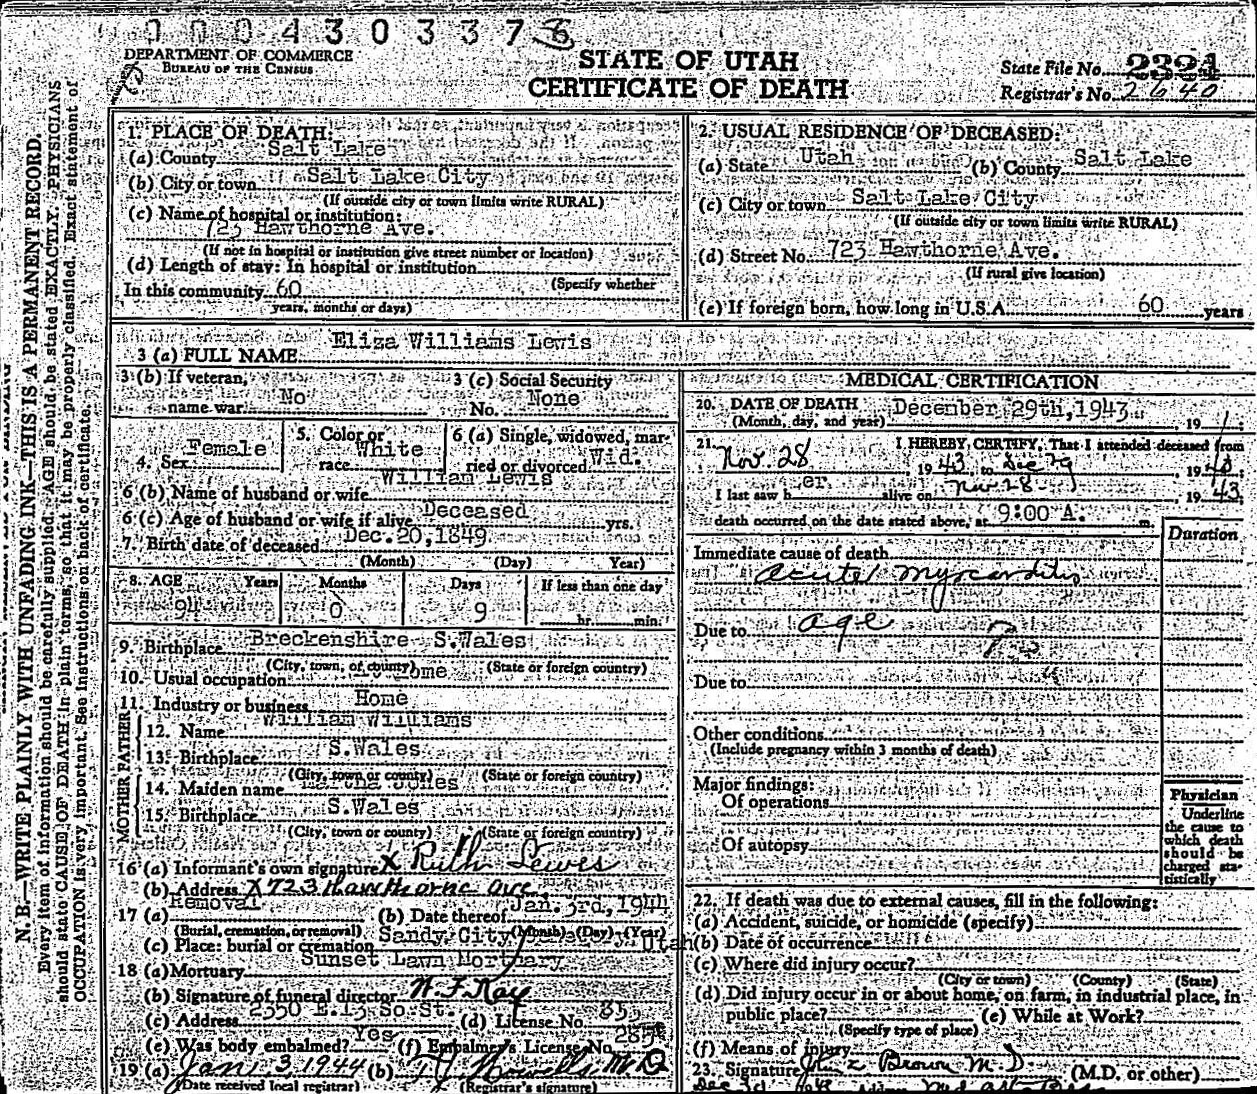 0004303378
DEPARTMENT OF COMMERCE
BUREAU OF THE CENSUS
STATE OF UTAH
CERTIFICATE OF DEATH
State File No. 2321
Registrar's No. 2640
N. B.—WRITE PLAINLY WITH UNFADING INK—THIS IS A PERMANENT RECORD.
Every item of information should be carefully supplied. AGE should be stated EXACTLY. PHYSICIANS
should state CAUSE OF DEATH in plain terms, so that it may be properly classified. Exact statement of
OCCUPATION is very important. See instructions on back of certificate.
1. PLACE OF DEATH:
(a) County Salt Lake
(b) City or town Salt Lake City
(If outside city or town limits write RURAL)
(c) Name of hospital or institution:
723 Hawthorne Ave.
(If not in hospital or institution give street number or location)
(d) Length of stay: In hospital or institution
(Specify whether
In this community 60
years, months or days)
2. USUAL RESIDENCE OF DECEASED:
(a) State Utah (b) County Salt Lake
(c) City or town Salt Lake City
(If outside city or town limits write RURAL)
(d) Street No. 723 Hawthorne Ave.
(If rural give location)
(e) If foreign born, how long in U.S.A. 60 years
3 (a) FULL NAME Eliza Williams Lewis
3 (b) If veteran, name war No
3 (c) Social Security No. None
4. Sex Female
5. Color or race White
6 (a) Single, widowed, married or divorced Wid.
6 (b) Name of husband or wife William Lewis
6 (c) Age of husband or wife if alive Deceased yrs.
7. Birth date of deceased Dec. 20, 1849
(Month) (Day) (Year)
8. AGE Years Months Days If less than one day
94 0 9 hr. min.
9. Birthplace Breckenshire S.Wales
(City, town, or county) (State or foreign country)
10. Usual occupation Home
11. Industry or business Home
FATHER
12. Name William Williams
13. Birthplace S.Wales
(City, town or county) (State or foreign country)
MOTHER
14. Maiden name Martha Jones
15. Birthplace S.Wales
(City, town or county) (State or foreign country)
16 (a) Informant's own signature X Ruth Lewis
(b) Address X 723 Hawthorne Ave.
17 (a) Removal (b) Date thereof Jan. 3rd, 1944
(Burial, cremation, or removal) (Month) (Day) (Year)
(c) Place: burial or cremation Sandy City Utah
18 (a) Mortuary Sunset Lawn Mortuary
(b) Signature of funeral director
(c) Address 2350 E. 13 So. St. (d) License No.
(e) Was body embalmed? Yes (f) Embalmer's License No.
19 (a) Jan. 3, 1944 (b) M.D.
(Date received local registrar) (Registrar's signature)
MEDICAL CERTIFICATION
20. DATE OF DEATH December 29th, 1943 19
(Month, day, and year)
21. I HEREBY CERTIFY, That I attended deceased from
Nov. 28, 1943, to Dec 29, 19
I last saw her alive on Nov 28, 1943,
death occurred on the date stated above, at 9:00 A. m.
Duration
Immediate cause of death
Acute Myocarditis
Due to age
Due to
Other conditions
(Include pregnancy within 3 months of death)
Major findings:
Of operations
Of autopsy
Physician
Underline
the cause to
which death
should be
charged sta-
tistically
22. If death was due to external causes, fill in the following:
(a) Accident, suicide, or homicide (specify)
(b) Date of occurrence
(c) Where did injury occur?
(City or town) (County) (State)
(d) Did injury occur in or about home, on farm, in industrial place, in
public place? (e) While at Work?
(Specify type of place)
(f) Means of injury
23. Signature Brown M.D. (M.D. or other)